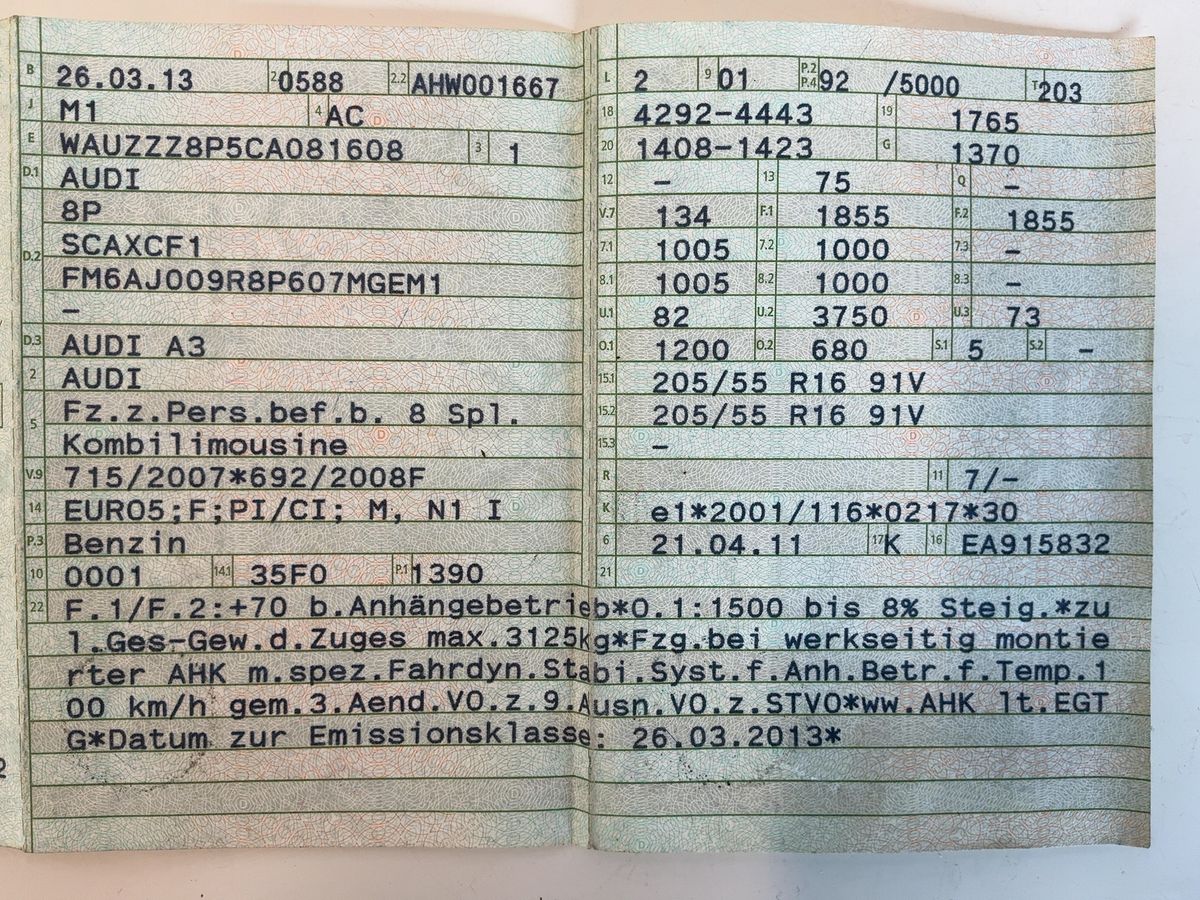 B 26.03.13 2.1 0588 2.2 AHW001667
J M1 4 AC
E WAUZZZ8P5CA081608 3 1
D.1 AUDI
8P
D.2 SCAXCF1
FM6AJ009R8P607MGEM1
–
D.3 AUDI A3
2 AUDI
5 Fz.z.Pers.bef.b. 8 Spl.
Kombilimousine
V.9 715/2007*692/2008F
14 EURO5;F;PI/CI; M, N1 I
P.3 Benzin
10 0001 14.1 35F0 P.1 1390
L 2 9 01 P.2 P.4 92 /5000 T 203
18 4292-4443 19 1765
20 1408-1423 G 1370
12 – 13 75 Q –
V.7 134 F.1 1855 F.2 1855
7.1 1005 7.2 1000 7.3 –
8.1 1005 8.2 1000 8.3 –
U.1 82 U.2 3750 U.3 73
O.1 1200 O.2 680 S.1 5 S.2 –
15.1 205/55 R16 91V
15.2 205/55 R16 91V
15.3 –
R 11 7/–
K e1*2001/116*0217*30
6 21.04.11 17 K 16 EA915832
21
22 F.1/F.2:+70 b.Anhängebetrieb*O.1:1500 bis 8% Steig.*zu
l.Ges-Gew.d.Zuges max.3125kg*Fzg.bei werkseitig montie
rter AHK m.spez.Fahrdyn.Stabi.Syst.f.Anh.Betr.f.Temp.1
00 km/h gem.3.Aend.VO.z.9.Ausn.VO.z.STVO*ww.AHK lt.EGT
G*Datum zur Emissionsklasse: 26.03.2013*